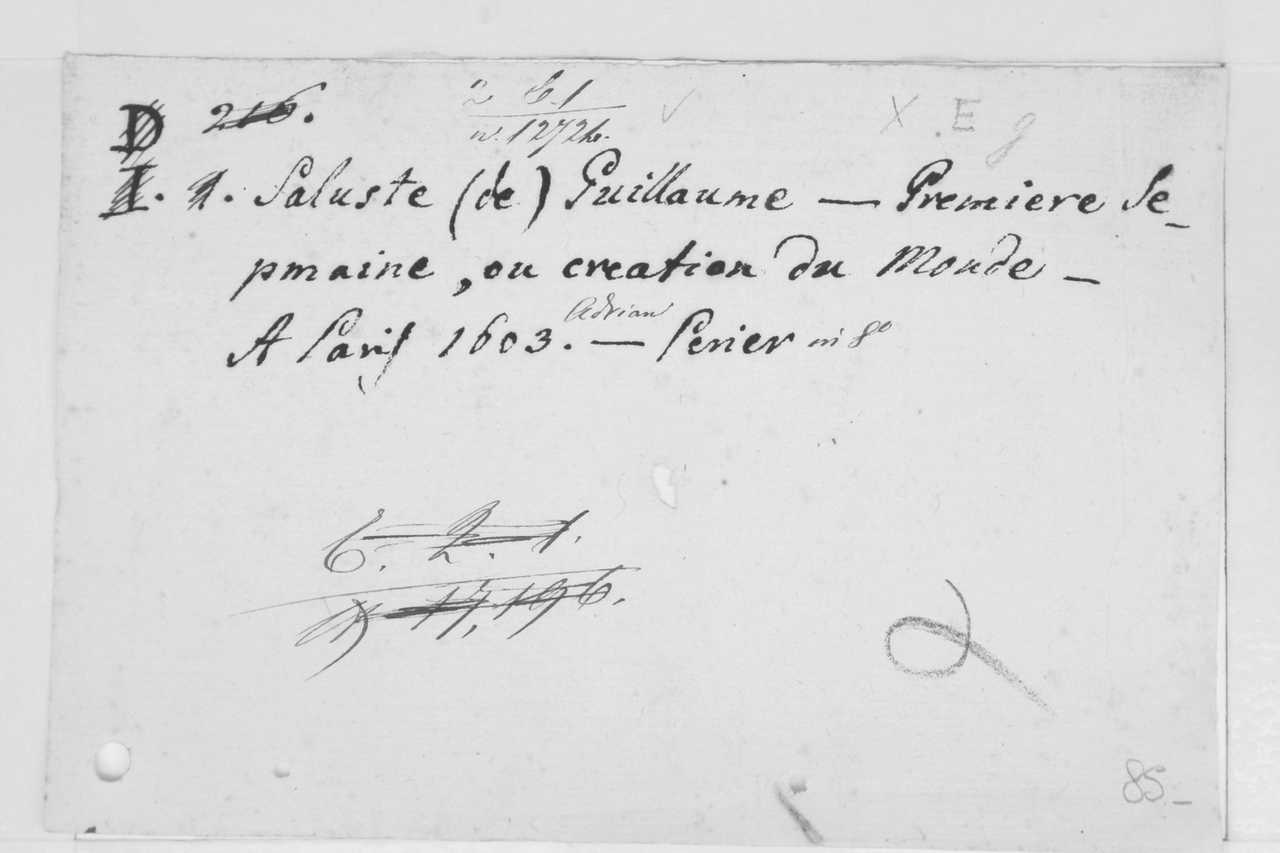 D 216.
X . E g
I. 1. Saluste (de) Guillaume — Premiere Se-
pmaine, ou creation du Monde -
A Paris 1603. — Adrian Perier in 8º
E. 2. 1.
17,196.
85-